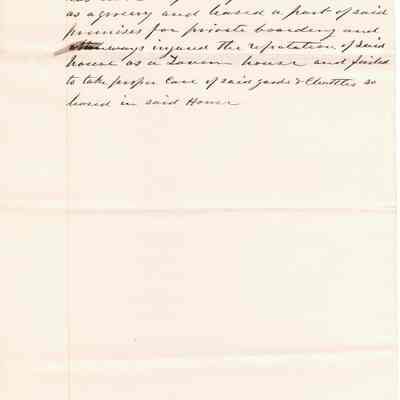 as a grocery and leased a part of said
premises for private boarding and
otherways injured the reputation of said
house as a Tavern house and failed
to take proper Care of said goods & Chattles so
leased in said House